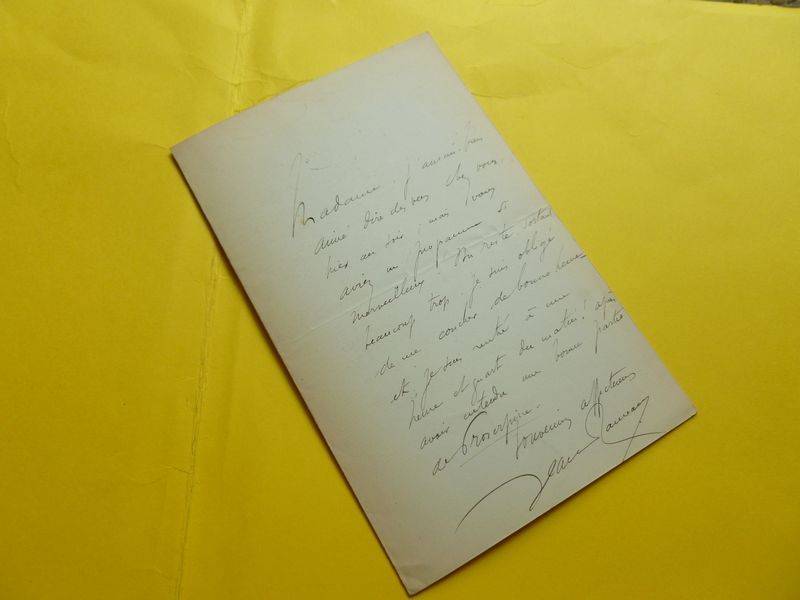 Madame, j'aurais bien
aimé dire des vers chez vous,
hier au soir ; mais vous
aviez un programme si
merveilleux ! On reste
beaucoup trop. je suis obligé
de me coucher de bonne heure
et je suis rentré à une
heure et quart du matin ! après
avoir entendu une bonne partie
de Proserpine.
Souvenirs affectueux
Jean Rameau